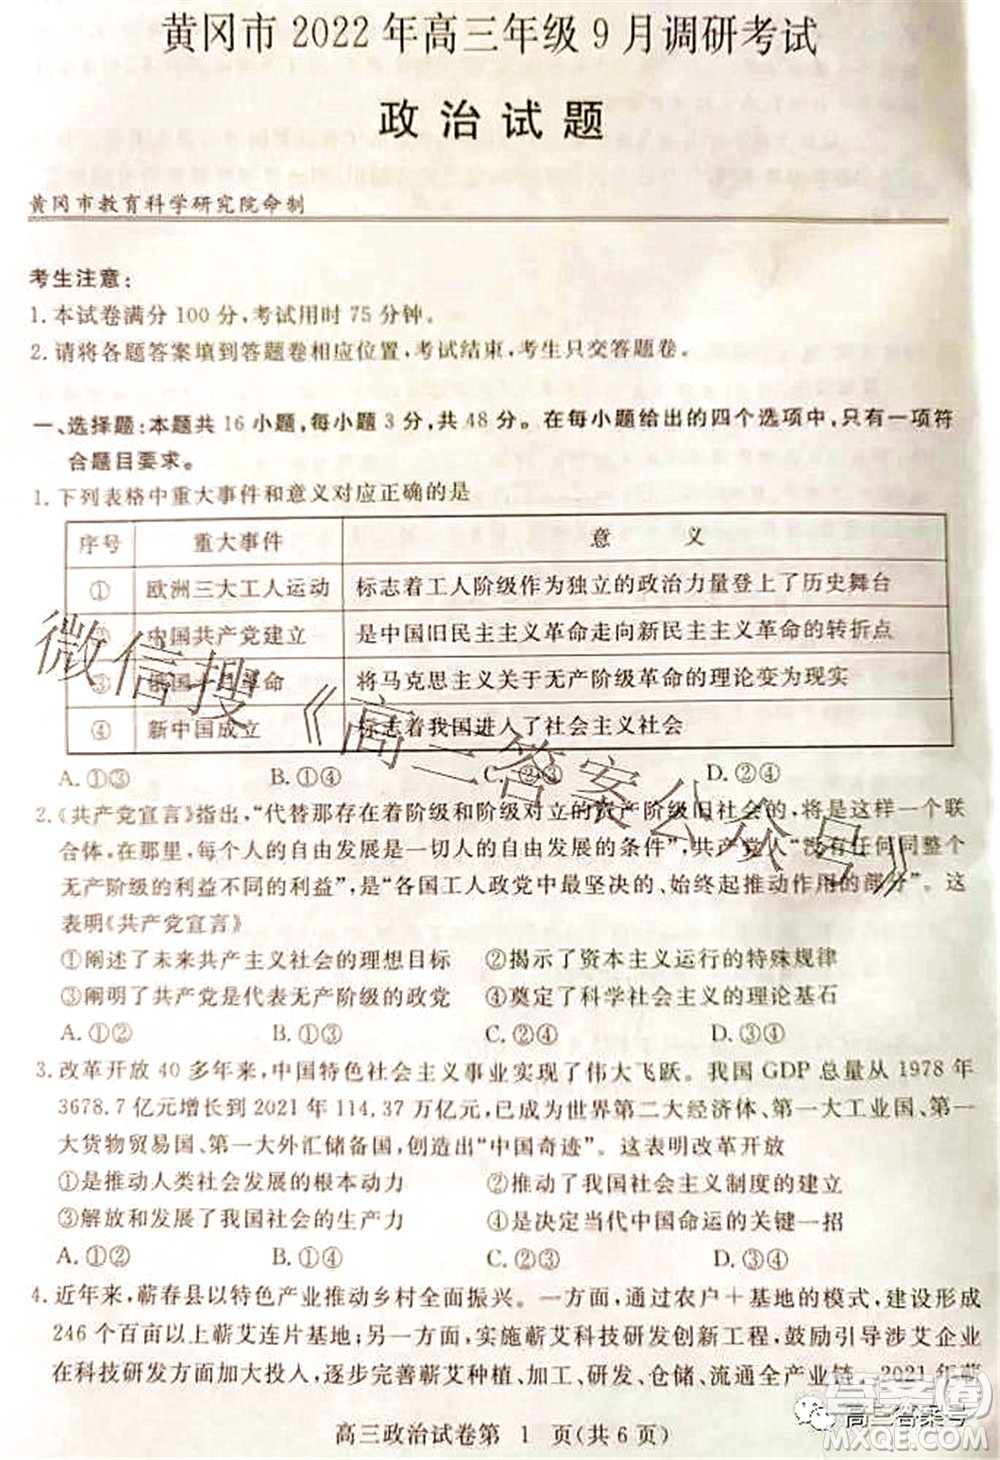 黄冈市2022年高三年级9月调研考试
政治试题
黄冈市教育科学研究院命制
考生注意:
1.本试卷满分100分,考试用时75分钟。
2.请将各题答案填到答题卷相应位置,考试结束,考生只交答题卷。
一、选择题:本题共16小题,每小题3分,共48分。在每小题给出的四个选项中,只有一项符
合题目要求。
1.下列表格中重大事件和意义对应正确的是
序号 重大事件 意 义
① 欧洲三大工人运动 标志着工人阶级作为独立的政治力量登上了历史舞台
② 中国共产党建立 是中国旧民主主义革命走向新民主主义革命的转折点
③ 俄国十月革命 将马克思主义关于无产阶级革命的理论变为现实
④ 新中国成立 标志着我国进入了社会主义社会
A.①③ B.①④ C.②③ D.②④
2.《共产党宣言》指出,“代替那存在着阶级和阶级对立的资产阶级旧社会的,将是这样一个联
合体,在那里,每个人的自由发展是一切人的自由发展的条件”,共产党人“没有任何同整个
无产阶级的利益不同的利益”,是“各国工人政党中最坚决的、始终起推动作用的部分”。这
表明《共产党宣言》
①阐述了未来共产主义社会的理想目标 ②揭示了资本主义运行的特殊规律
③阐明了共产党是代表无产阶级的政党 ④奠定了科学社会主义的理论基石
A.①② B.①③ C.②④ D.③④
3.改革开放40多年来,中国特色社会主义事业实现了伟大飞跃。我国GDP总量从1978年
3678.7亿元增长到2021年114.37万亿元,已成为世界第二大经济体、第一大工业国、第一
大货物贸易国、第一大外汇储备国,创造出“中国奇迹”。这表明改革开放
①是当代人类社会发展的根本动力 ②推动了我国社会主义制度的建立
③解放和发展了我国社会的生产力 ④是决定当代中国命运的关键一招
A.①② B.①③ C.②④ D.③④
4.近年来,蕲春县以特色产业推动乡村全面振兴。一方面,通过农户+基地的模式,建设形成
246个百亩以上蕲艾连片基地;另一方面,实施蕲艾科技研发创新工程,鼓励引导涉艾企业
在科技研发方面加大投入,逐步完善蕲艾种植、加工、研发、仓储、流通全产业链。2021年蕲
高三政治试卷第 1 页(共6页)
微信搜《高三答案公众号》
高三答案号
答案圈